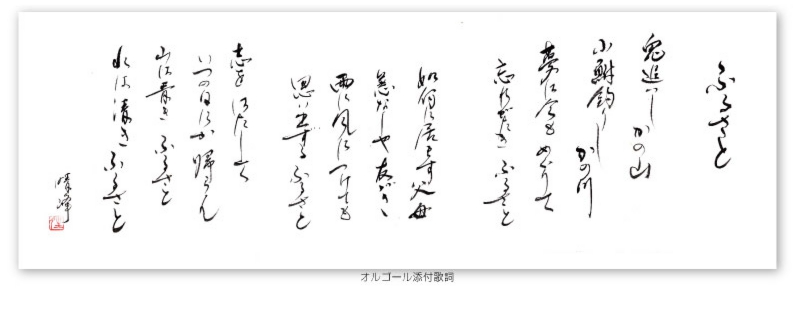 ふるさと
兎追いし かの山
小鮒釣りし かの川
夢は今も めぐりて
忘れがたき ふるさと
如何に居ます 父母
恙なしや 友がき
雨に風に つけても
思い出する ふるさと
志を はたして
いつの日にか 帰らん
山は青き ふるさと
水は清き ふるさと
オルゴール添付歌詞